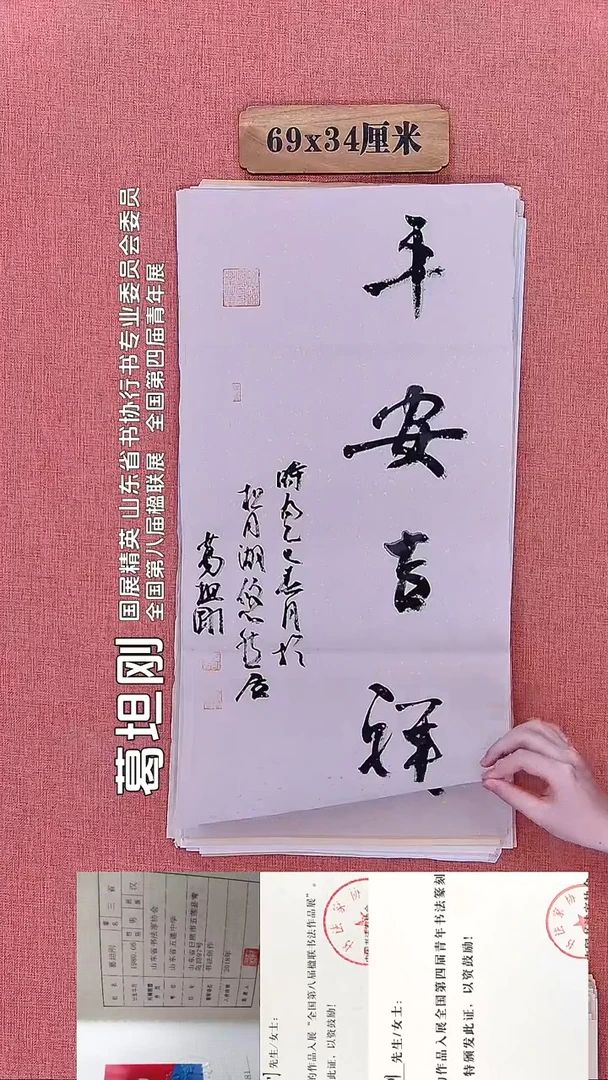 69x34厘米
平安吉祥
時为乙巳春月於
松月湖悠然居
葛坦刚
葛坦刚
国展精英 山东省书协行书专业委员会委员
全国第八届楹联展 全国第四届青年展
山东省书法家协会
山东省五莲中学
2018年
先生/女士:
的作品入展“全国第八届楹联书法作品展”。
此证,以资鼓励!
先生/女士:
作品入展全国第四届青年书法篆刻
特颁发此证,以资鼓励!